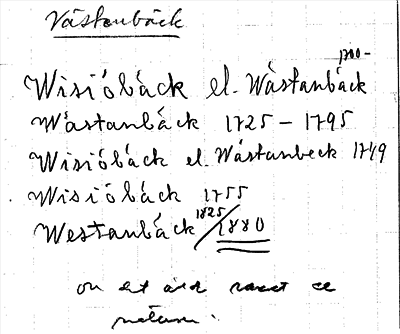 Västenbäck
1700-
Wisiöbäck el. Wästanbäck
Wästanbäck 1725 – 1795
Wisiöbäck el. Wästanbeck 1749
Wisiöbäck 1755
Westanbäck 1825/1880